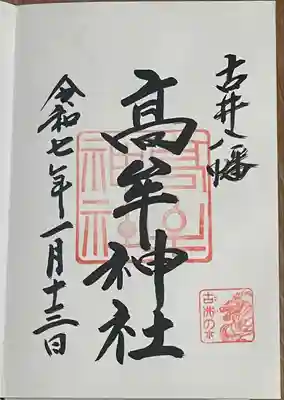 古井八幡
高牟神社
令和七年一月十三日
古井の水